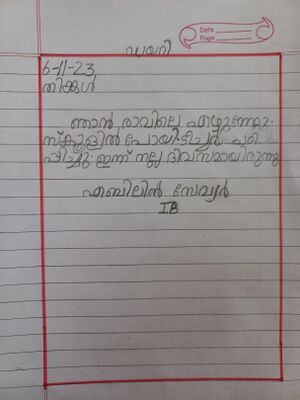 Date
Page
ഡയറി
6-11-23
തിങ്കൾ
ഞാൻ രാവിലെ എഴുന്നേറ്റു.
സ്കൂളിൽ പോയി. ടീച്ചർ പഠി
പ്പിച്ചു. ഇന്ന് നല്ല ദിവസമായിരുന്നു
എബിലിൻ സേവ്യർ
IB